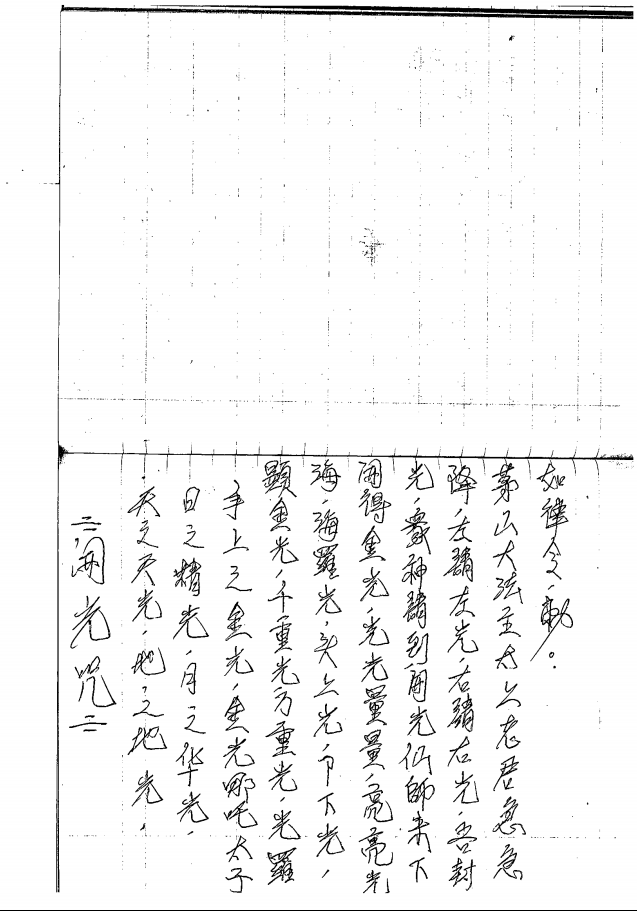 =開光咒=
天之天光,地之地光,
日之精光,月之华光,
手上之金光,金光哪吒太子
顯金光,千重光万重光,光羅
海,海羅光,头上光,下光,
開得金光,光光量量,亮亮光
光,衆神請到開光仙師来下
降,左請左光,右請右光,吾封
茅山大法主太上老君急急
如律令,勅。